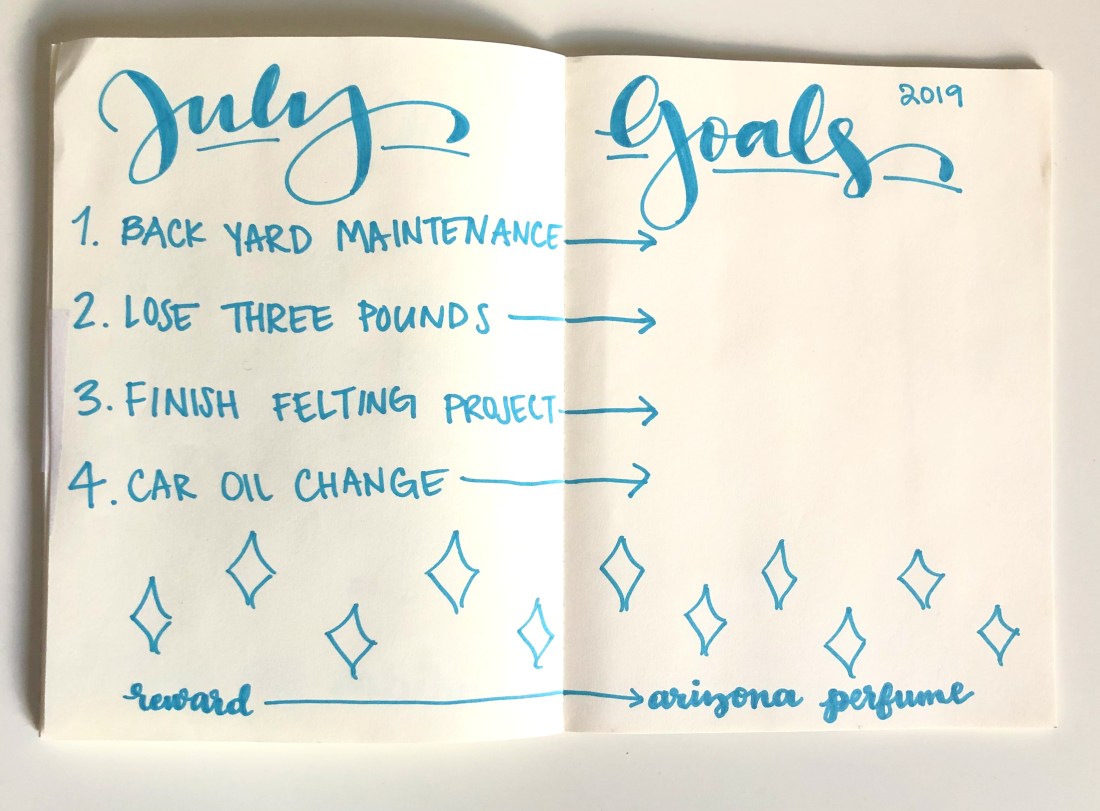 July Goals 2019
1. BACK YARD MAINTENANCE
2. LOSE THREE POUNDS
3. FINISH FELTING PROJECT
4. CAR OIL CHANGE
reward arizona perfume